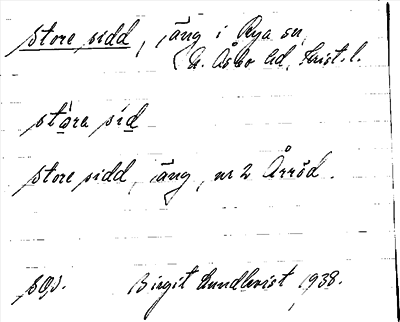 store sidd, äng i Rya sn,
N. Åsbo hd, Krist. l.
stára sìd
store sidd, äng, nr 2 Årröd.
Birgit Lundkvist, 1938.